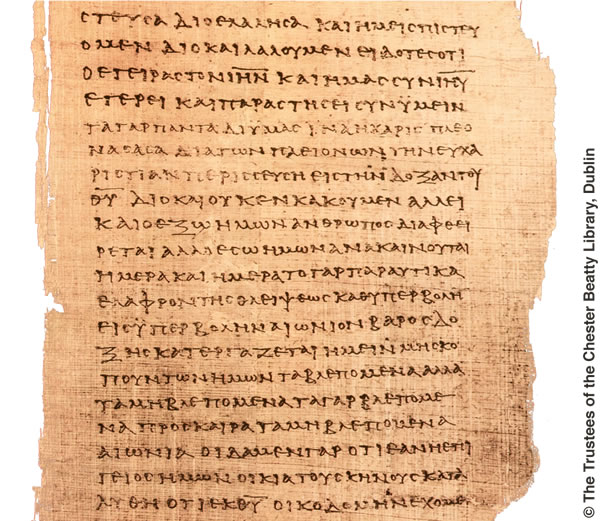 ΣΤΕΥΣΑ ΔΙΟ ΕΛΑΛΗΣΑ ΚΑΙ ΗΜΕΙΣ ΠΙΣΤΕΥ
ΟΜΕΝ ΔΙΟ ΚΑΙ ΛΑΛΟΥΜΕΝ ΕΙΔΟΤΕΣ ΟΤΙ
Ο ΕΓΕΙΡΑΣ ΤΟΝ ΙΗΝ ΚΑΙ ΗΜΑΣ ΣΥΝ ΙΗΥ
ΕΓΕΡΕΙ ΚΑΙ ΠΑΡΑΣΤΗΣΕΙ ΣΥΝ ΥΜΕΙΝ
ΤΑ ΓΑΡ ΠΑΝΤΑ ΔΙ ΥΜΑΣ ΙΝΑ Η ΧΑΡΙΣ ΠΛΕΟ
ΝΑΣΑΣΑ ΔΙΑ ΤΩΝ ΠΛΕΙΟΝΩΝ ΤΗΝ ΕΥΧΑ
ΡΙΣΤΙΑΝ ΠΕΡΙΣΣΕΥΣΗ ΕΙΣ ΤΗΝ ΔΟΞΑΝ ΤΟΥ
ΘΥ ΔΙΟ ΚΑΙ ΟΥΚ ΕΝΚΑΚΟΥΜΕΝ ΑΛΛ ΕΙ
ΚΑΙ Ο ΕΞΩ ΗΜΩΝ ΑΝΘΡΩΠΟΣ ΔΙΑΦΘΕΙ
ΡΕΤΑΙ ΑΛΛ Ο ΕΣΩ ΗΜΩΝ ΑΝΑΚΑΙΝΟΥΤΑΙ
ΗΜΕΡΑ ΚΑΙ ΗΜΕΡΑ ΤΟ ΓΑΡ ΠΑΡΑΥΤΙΚΑ
ΕΛΑΦΡΟΝ ΤΗΣ ΘΛΕΙΨΕΩΣ ΚΑΘ ΥΠΕΡΒΟΛΗ
ΕΙΣ ΥΠΕΡΒΟΛΗΝ ΑΙΩΝΙΟΝ ΒΑΡΟΣ ΔΟ
ΞΗΣ ΚΑΤΕΡΓΑΖΕΤΑΙ ΗΜΕΙΝ ΜΗ ΣΚΟ
ΠΟΥΝΤΩΝ ΗΜΩΝ ΤΑ ΒΛΕΠΟΜΕΝΑ ΑΛΛΑ
ΤΑ ΜΗ ΒΛΕΠΟΜΕΝΑ ΤΑ ΓΑΡ ΒΛΕΠΟΜΕ
ΝΑ ΠΡΟΣΚΑΙΡΑ ΤΑ ΜΗ ΒΛΕΠΟΜΕΝΑ
ΑΙΩΝΙΑ ΟΙΔΑΜΕΝ ΓΑΡ ΟΤΙ ΕΑΝ Η ΕΠΙ
ΓΕΙΟΣ ΗΜΩΝ ΟΙΚΙΑ ΤΟΥ ΣΚΗΝΟΥΣ ΚΑΤΑ
ΛΥΘΗ ΟΤΙ ΕΚ ΘΥ ΟΙΚΟΔΟΜΗΝ ΕΧΟΜΕ
© The Trustees of the Chester Beatty Library, Dublin